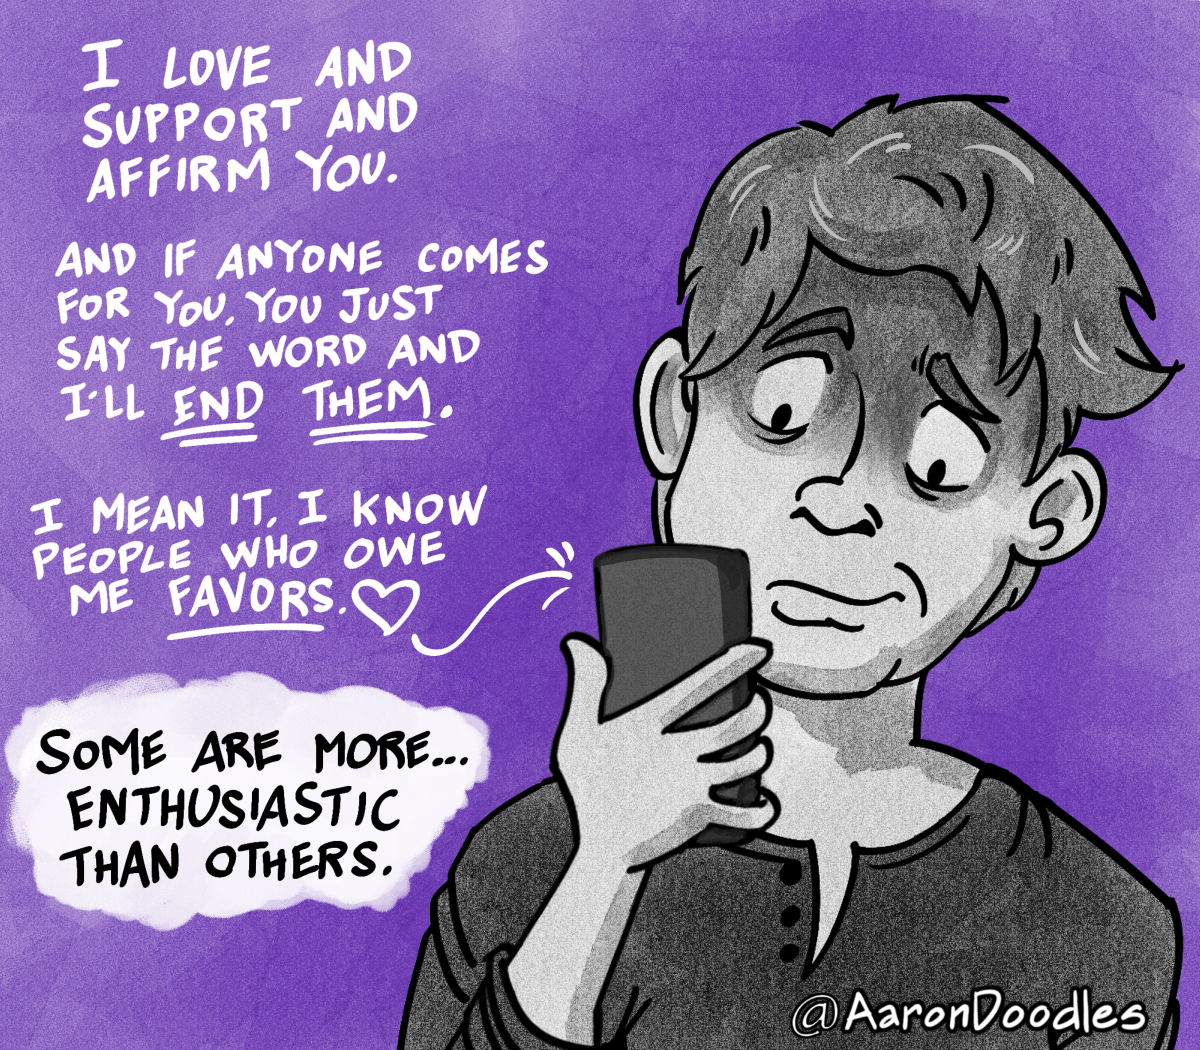 I LOVE AND
SUPPORT AND
AFFIRM YOU.
AND IF ANYONE COMES
FOR YOU, YOU JUST
SAY THE WORD AND
I'LL END THEM.
I MEAN IT, I KNOW
PEOPLE WHO OWE
ME FAVORS.
SOME ARE MORE...
ENTHUSIASTIC
THAN OTHERS.
@AaronDoodles